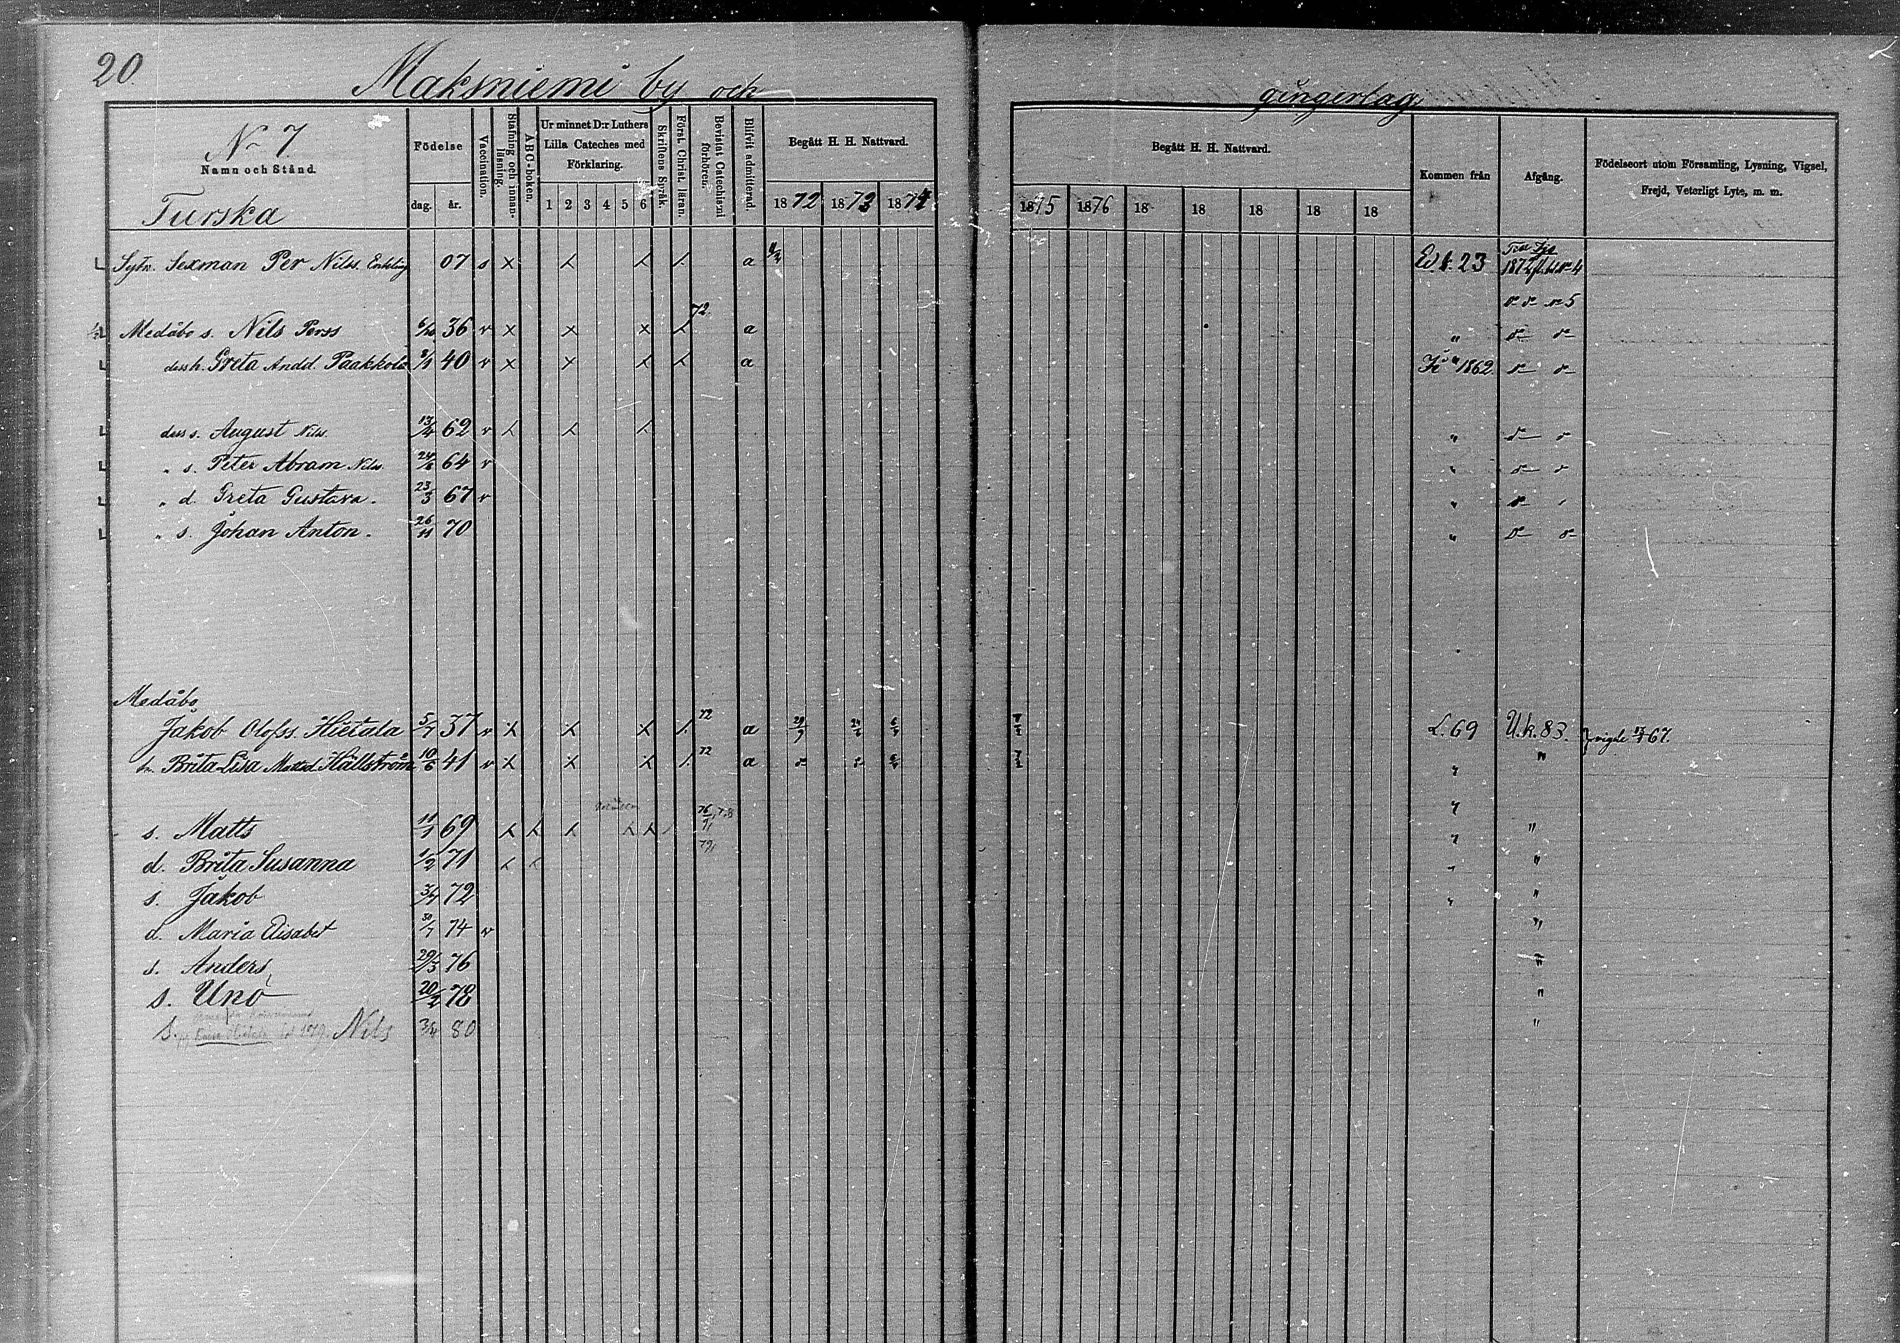 20.
Maksniemi by och gingerlag
No 7.
Namn och Stånd.
Turska
Födelse
dag. år.
Vaccination.
Stafning och innanläsning.
ABC-boken.
Ur minnet D:r Luthers Lilla Cateches med Förklaring.
1 2 3 4 5 6
Skriftens Språk.
Först. Christ. läran.
Bevistat Catechismi förhören.
Blifvit admitterad.
Begått H. H. Nattvard.
1872 1873 1874
Begått H. H. Nattvard.
1875 1876 18 18 18 18 18
Kommen från
Afgång.
Födelseort utom Församling, Lysning, Vigsel, Frejd, Veterligt Lyte, m. m.
Sytn. Sexman Per Nilss. Enkling 07 s x a 23 1872
no 5
Medåbo s. Nils Perss 36 v x x x 72 a "
dess h. Greta Andd. Paakkola 40 v x x a 1862
dess s. August Nilss. 13/4 62 v "
" s. Peter Abram Nilss 24/8 64 v "
" d. Greta Gustava. 23/3 67 v "
" s. Johan Anton. 26/11 70 "
Medåbo
Jakob Olofss. Hietala 5/7 37 v x x x 72 a L. 69 U.k. 83. vigde 67.
h. Brita Lisa Mattsd. Hällström 10/6 41 v x x x 72 a " "
s. Matts 11/1 69 " "
d. Brita Susanna 1/2 71 "
s. Jakob 72 "
d. Maria Elisabet 30/7 74 v "
s. Anders 29/3 76 "
s. Uno 20/2 78 "
s. Nils 80 "